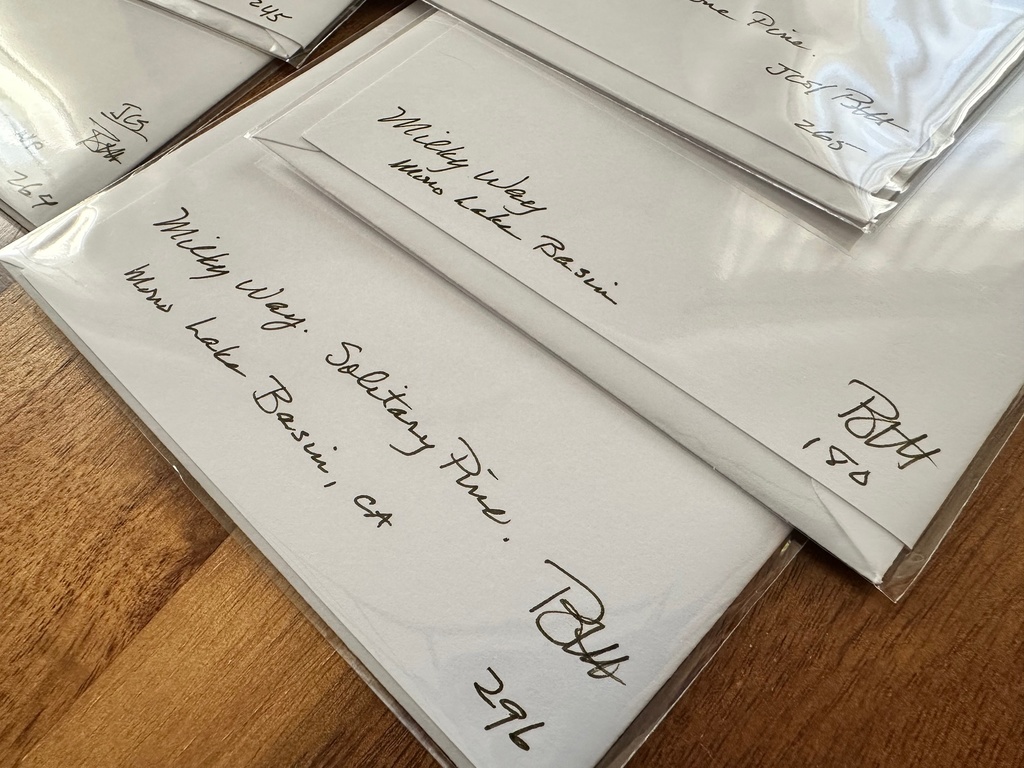 245
JCS
BHH
264
one Pine.
JCS/BHH
265
Milky Way
Mono Lake Basin
BHH
180
Milky Way. Solitary Pine.
Mono Lake Basin, CA
BHH
296